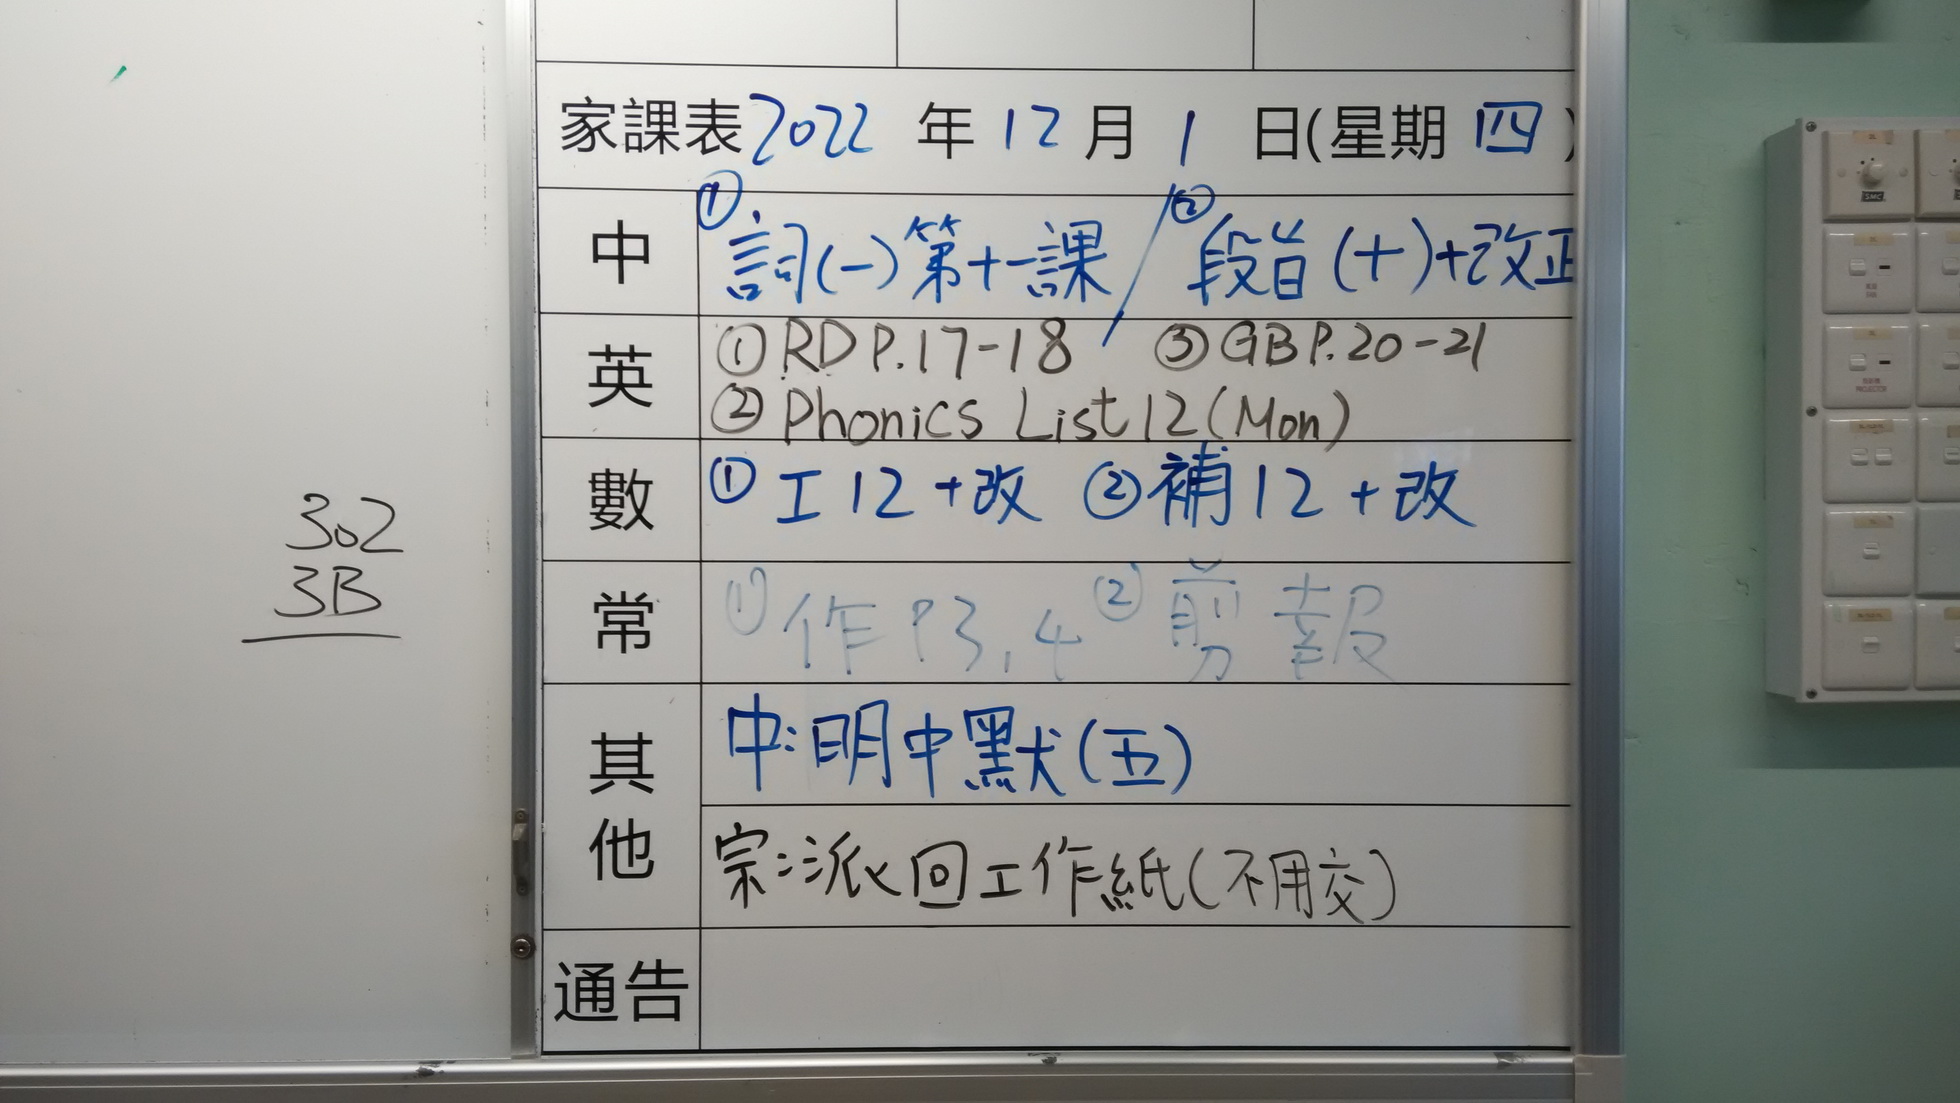 家課表 2022 年 12 月 1 日(星期 四)
中 ① 詞(一)第十一課 / ② 段旨(十)+改正
英 ① RD P.17-18 ③ GB P.20-21
② Phonics List 12 (Mon)
數 ① 工12+改 ② 補12+改
常 ① 作 P3,4 ② 剪報
其他 中:明中默(五)
宗:派回工作紙(不用交)
通告
302
3B